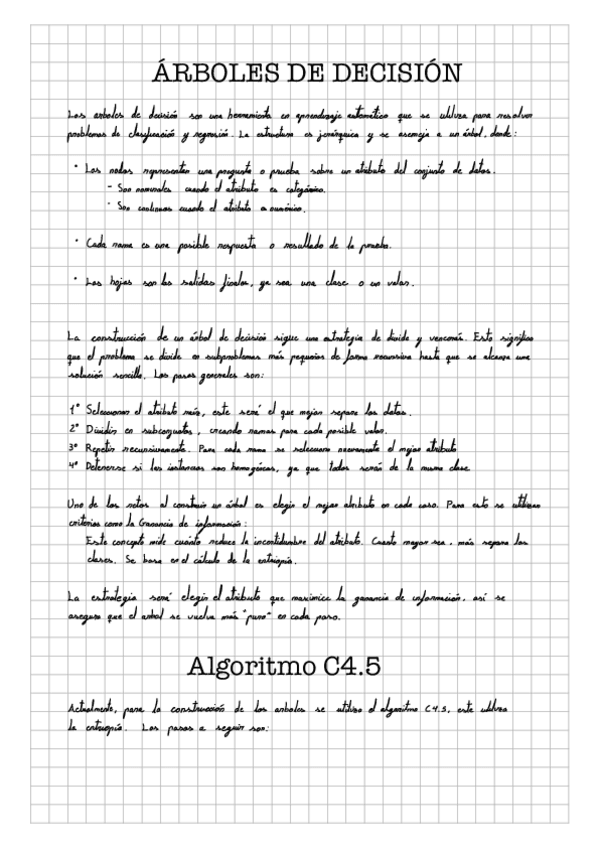 ÁRBOLES DE DECISIÓN
Los arboles de decisión son una herramienta en aprendizaje automático que se utiliza para resolver
problemas de clasificación y regresión. La estructura es jerárquica y se asemeja a un árbol, donde:
· Los nodos representan una pregunta o prueba sobre un atributo del conjunto de datos.
- Son nominales cuando el atributo es categórico.
· Son continuos cuando el atributo es numérico.
· Cada rama es una posible respuesta o resultado de la prueba.
· Las hojas son las salidas finales, ya sea una clase o un valor.
La construcción de un árbol de decisión sigue una estrategia de divide y vencerás. Esto significa
que el problema se divide en subproblemas más pequeños de forma recursiva hasta que se alcanza una
solución sencilla. Los pasos generales son:
1º Seleccionar el atributo raíz, este será el que mejor separe los datos.
2º Dividir en subconjuntos, creando ramas para cada posible valor.
3º Repetir recursivamente. Para cada rama se selecciona nuevamente el mejor atributo
4º Detenerse si las instancias son homogéneas, ya que todas serán de la misma clase.
Uno de los retos al construir un árbol es elegir el mejor atributo en cada caso. Para esto se utilizan
criterios como la Ganancia de información:
Este concepto mide cuánto reduce la incertidumbre del atributo. Cuanto mayor sea, más separa las
clases. Se basa en el cálculo de la entropía.
La estrategia será elegir el atributo que maximice la ganancia de información, así se
asegura que el arbol se vuelva más "puro" en cada paso.
Algoritmo C4.5
Actualmente, para la construcción de los arboles se utiliza el algoritmo C4.5, este utiliza
la entropía. Los pasos a seguir son: